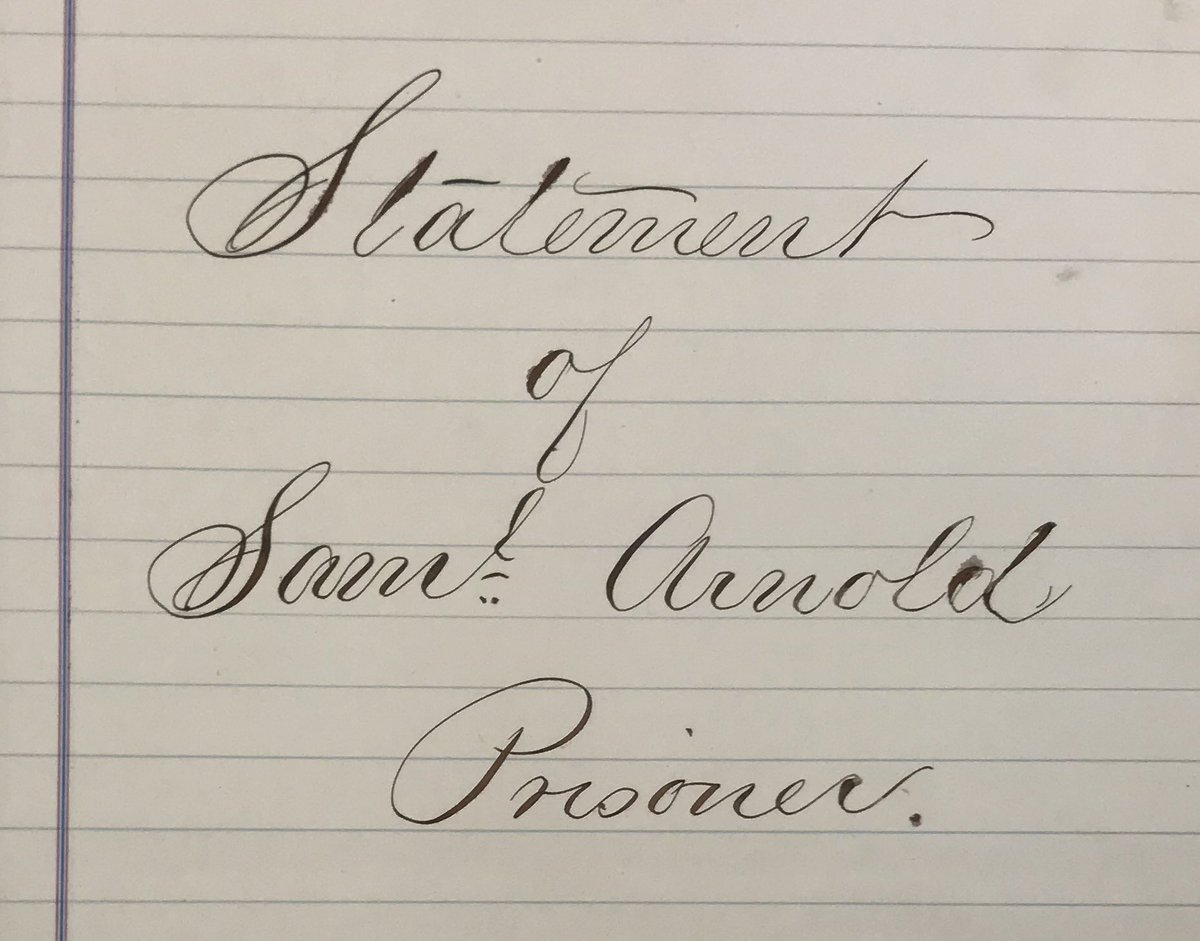 Statement
of
Saml. Arnold
Prisoner.